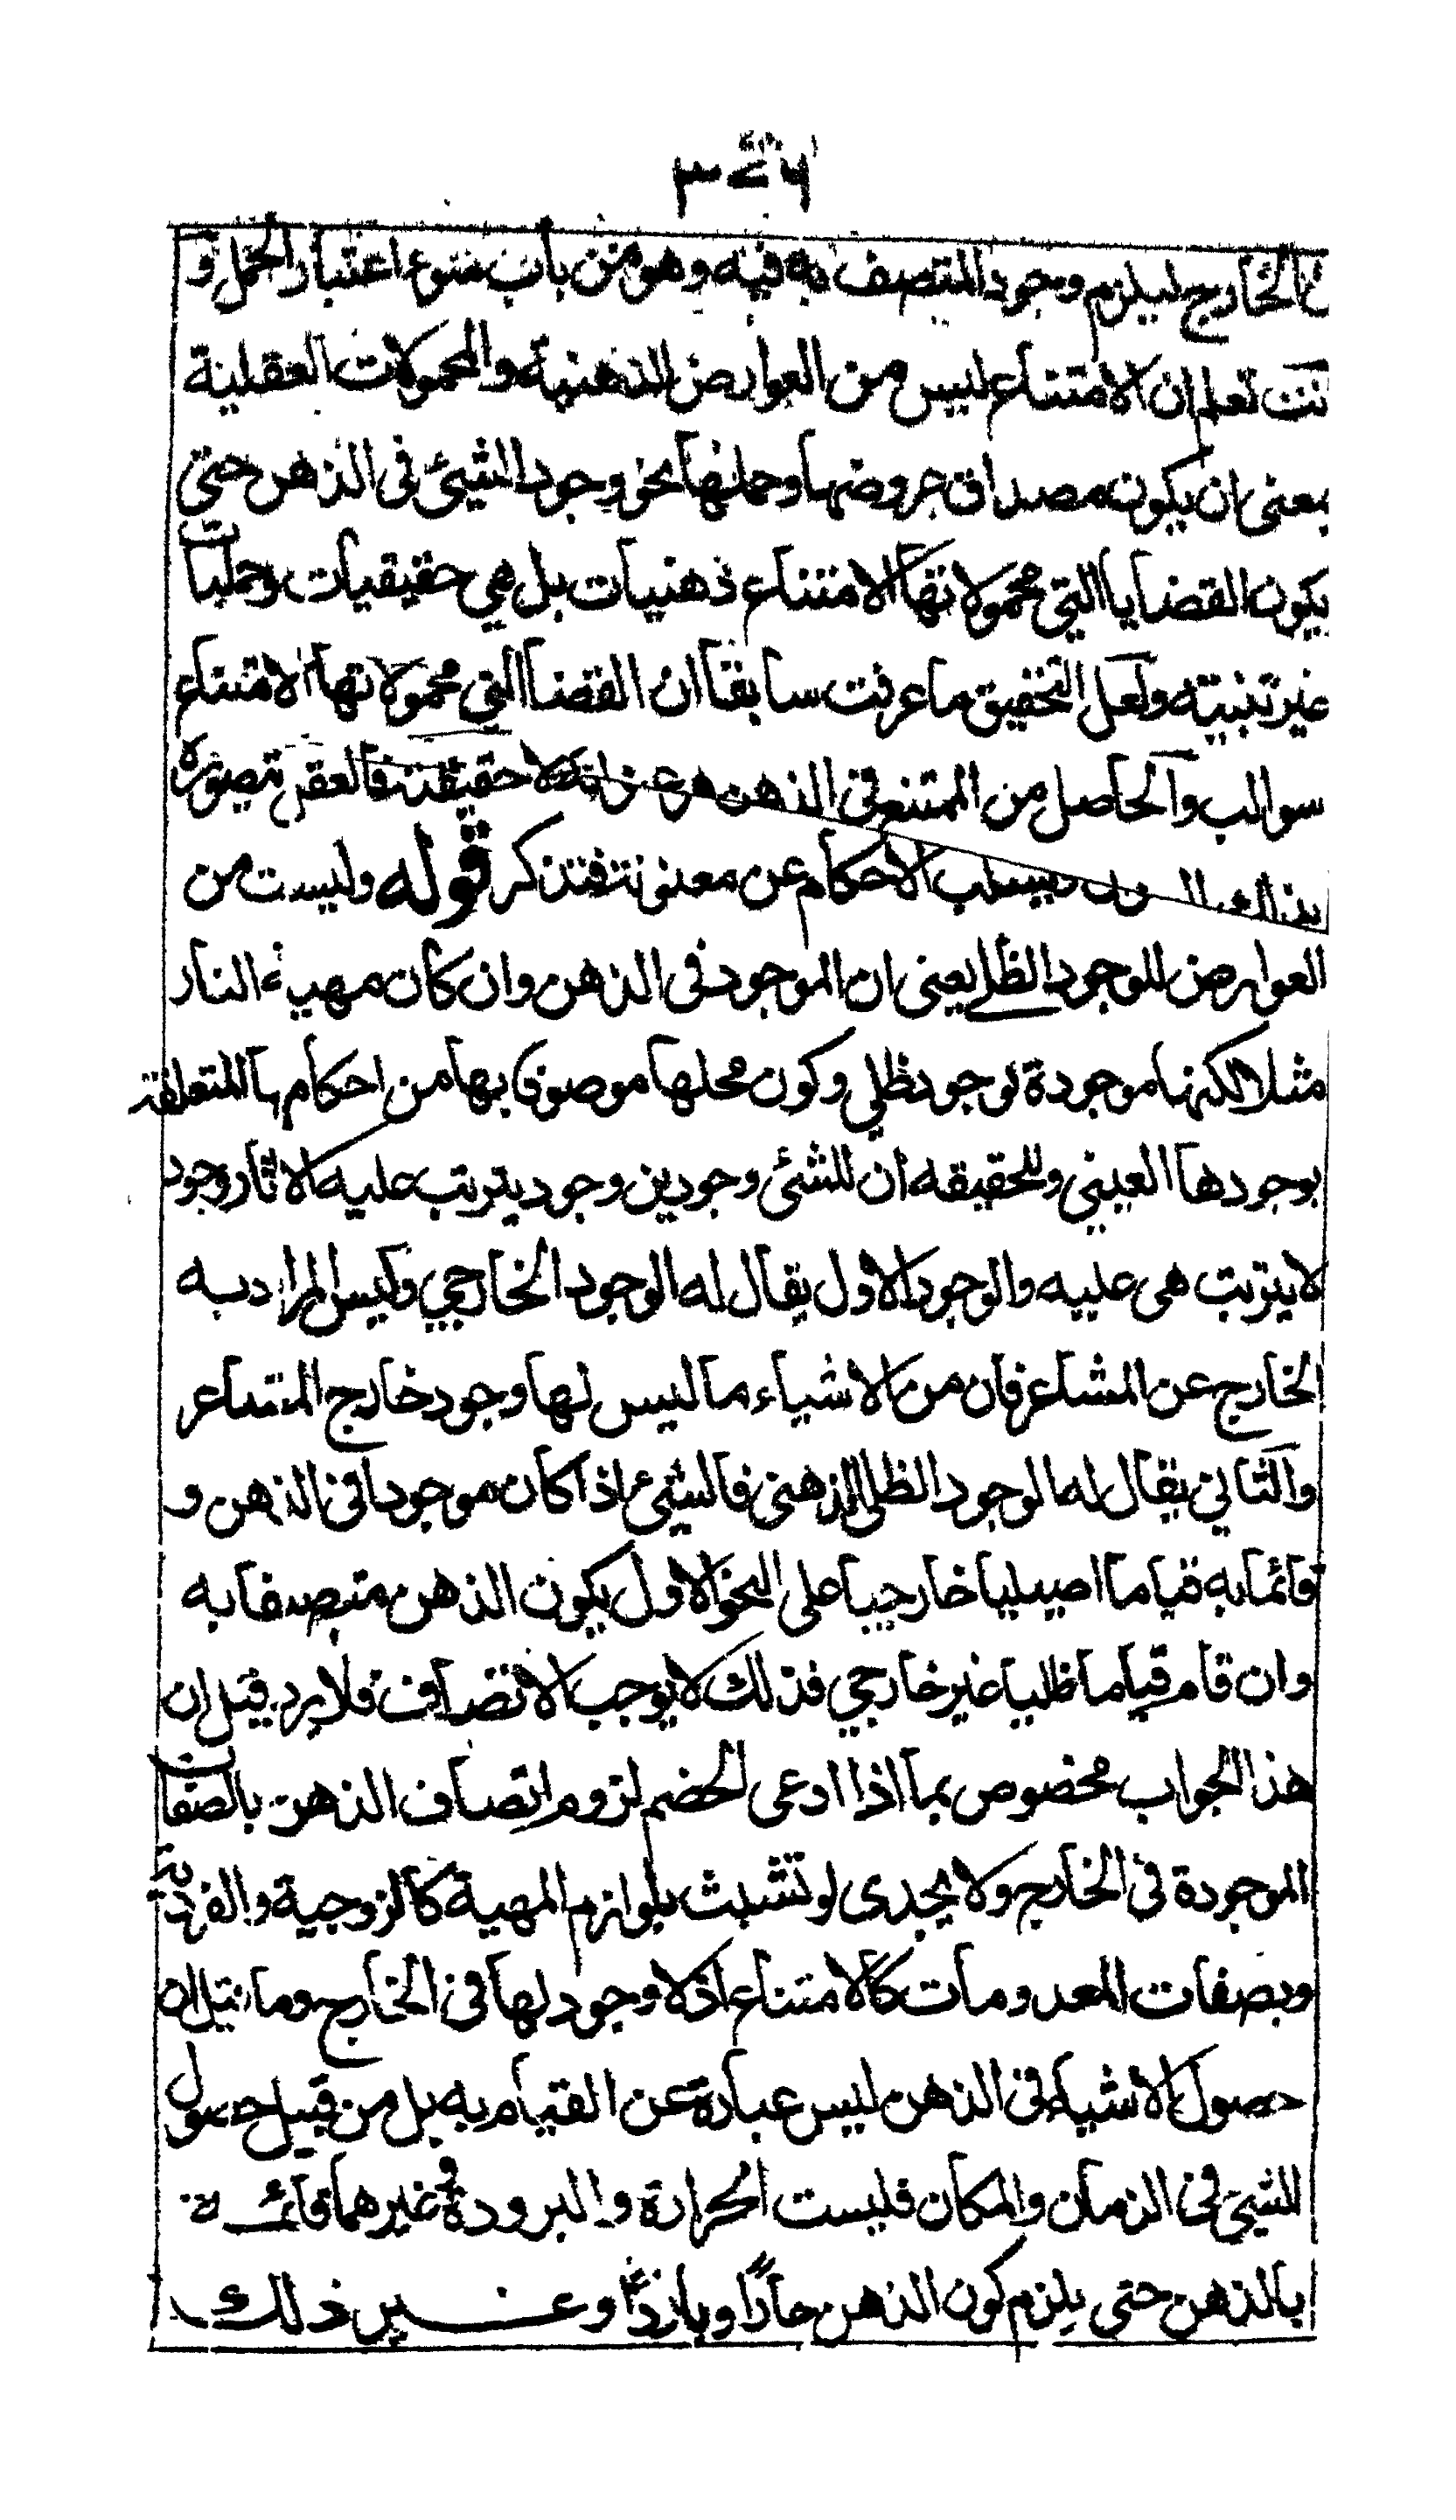 ٣٤٦
الخارج ليلزم وجود المتصف به فيه وهو من باب متنوع اعتبار الحمل و
نت تعلم ان الامتناع ليس من العوارض الذهنية والمحمولات العقلية
بمعنى ان يكون مصداق عروضها وحملها نحو وجود الشيئ فى الذهن حتى
يكون القضايا التي محمولاتها الامتناع ذهنيات بل هي حقيقيات وحمليات
غير تبنيته ولعل التحقيق ما عرفت سابقا ان القضايا التي محمولاتها الامتناع
سوالب والحاصل من الممتنع فى الذهن هو عنوانه لا حقيقته فالعقل يتصوره
بسلب الاحكام عن معنونه فتذكر قوله وليست من
العوارض للوجود الظلي يعنى ان الموجود فى الذهن وان كان مهية النار
مثلا لكنها موجودة بوجود ظلي وكون محلها موصوفا بها من احكامها المتعلقة
بوجودها العينى والحقيقه ان للشئى وجودين وجود يترتب عليه الاثار ووجود
لا يترتب هى عليه والوجود الاول يقال له الوجود الخارجي وليس المراد به
الخارج عن المشاعر فان من الاشياء ما ليس لها وجود خارج المشاعر
والثاني يقال له الوجود الظلي الذهنى فالشيئ اذا كان موجودا فى الذهن و
قائما به قياما اصيليا خارجيا على النحو الاول يكون الذهن متصفا به
وان قام قياما ظليا غير خارجي فذلك لا يوجب الاتصاف فلا يرد قيل ان
هذا الجواب مخصوص بما اذا ادعى الخصم لزوم اتصاف الذهن بالصفات
الموجودة فى الخارج ولا يجدى لو تشبث بلوازم المهية كالزوجية والفردية
وبصفات المعدومات كالامتناع اذ لا وجود لها فى الخارج وما قيل ان
حصول الاشياء فى الذهن ليس عبارة عن القيام به بل من قبيل حصول
الشيئ فى الزمان والمكان فليست الحرارة والبرودة وغيرهما قائمة
بالذهن حتى يلزم كون الذهن حارًا وباردًا وغير ذلك